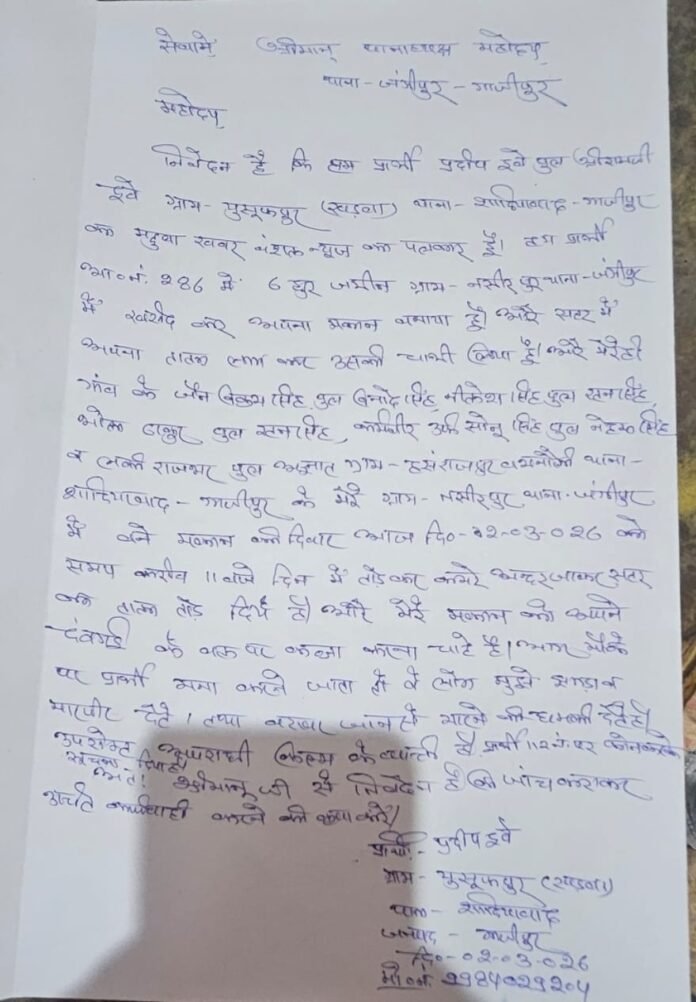 सेवामें, श्रीमान् थानाध्यक्ष महोदय
थाना - जंगीपुर - गाजीपुर
महोदय
निवेदन है कि हम प्रार्थी प्रदीप दुबे पुत्र श्रीरामजी
दुबे ग्राम - युसूफपुर (खड़वा) थाना - शादियाबाद - गाजीपुर
का महुवा खबर न्यूज का पत्रकार हूँ। हम प्रार्थी
आ०नं. 286 में 6 धुर जमीन ग्राम - नसीरपुर थाना - जंगीपुर
में खरीद कर अपना मकान बनाया है। और सटर में
अपना ताला लगा कर उसकी चाभी लिया है। और मेरे ही
गांव के विकास सिंह, पुत्र विनोद सिंह, नीलेश सिंह पुत्र
भोला ठाकुर पुत्र कर्मवीर उर्फ सोनू सिंह पुत्र सिंह
व लकी राजभर पुत्र अज्ञात ग्राम - हंसराजपुर थाना -
शादियाबाद - गाजीपुर के मेरे ग्राम - नसीरपुर थाना - जंगीपुर
में बने मकान की दिवार आज दि० - 02-03-026 को
समय करीब 11 बजे दिन में तोड़ कर कमरे अन्दर जाकर सटर
का ताला तोड़ दिये है। और मेरे मकान को अपने
दबंगई के बल पर कब्जा करना चाहे है। मौके
पर प्रार्थी मना करने जाता हो वे लोग मुझे झगड़ा व
मारपीट देते। तथा बराबर जान से मारने की धमकी देते है।
उपरोक्त अपराधी किस्म के व्यक्ति है प्रार्थी 112 नं. पर फोन करके
सूचना दिया है।
अतः श्रीमान् जी से निवेदन है कि जांच कराकर
उचित कार्यवाही करने की कृपा करें।
प्रार्थी - प्रदीप दुबे
ग्राम - युसूफपुर (खड़वा)
थाना - शादियाबाद
जनपद - गाजीपुर
दि० - 02-03-026
मो०नं. 9984029204